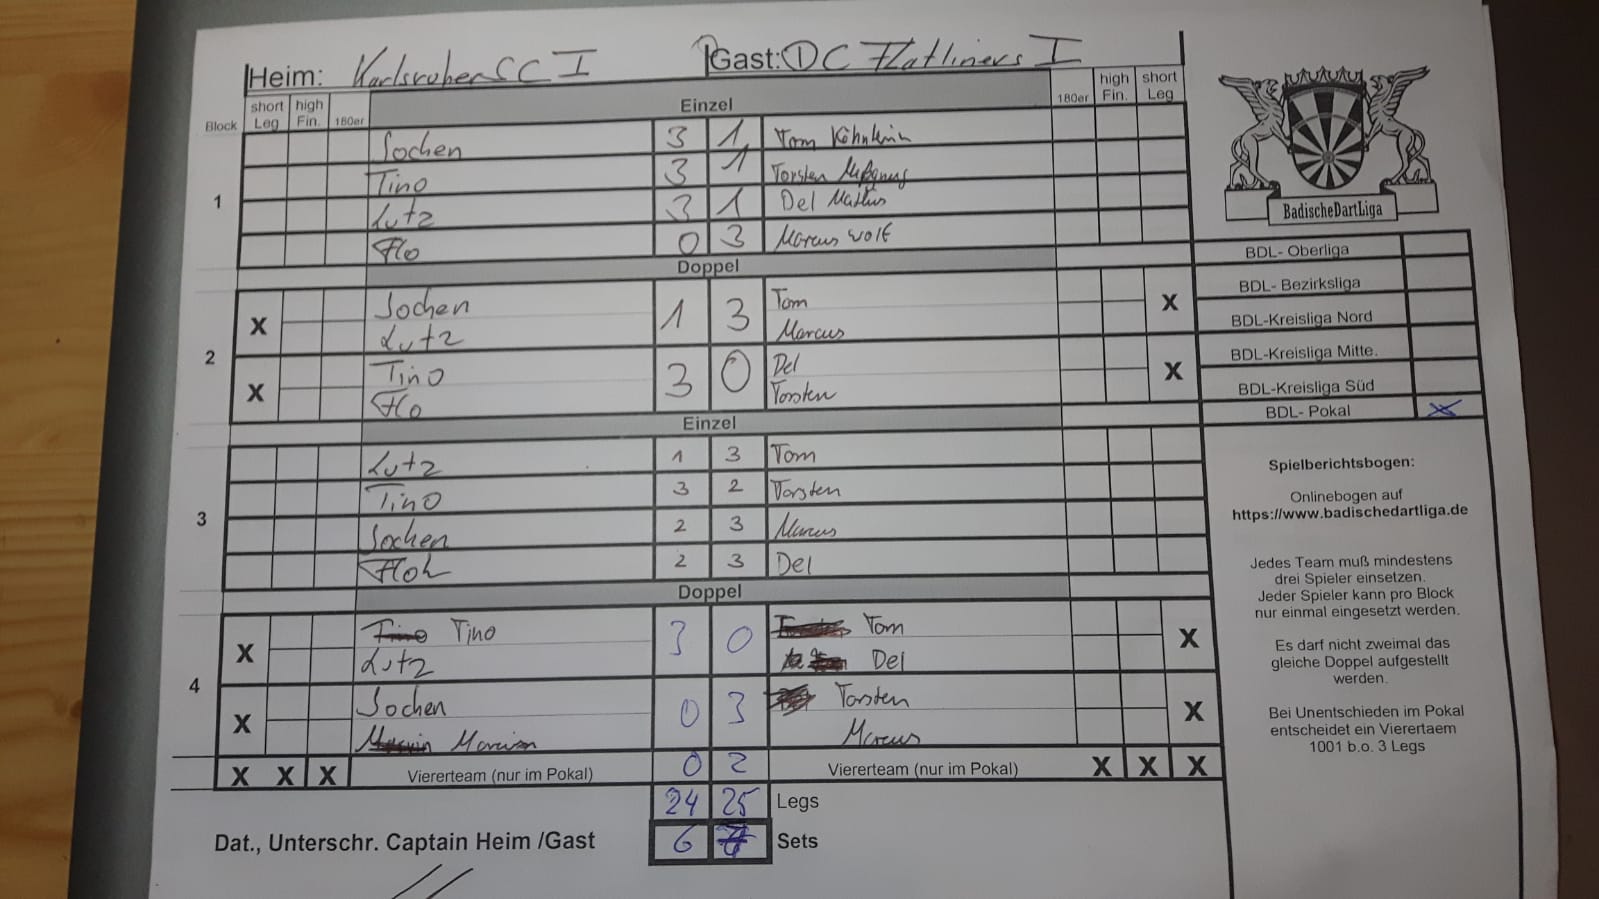 Heim: Karlsruher SC I Gast: DC Flatliners I
Block short Leg high Fin. 180er Einzel 180er high Fin. short Leg
1
Jochen 3 1 Tom Köhnlein
Tino 3 1 Torsten
Lutz 3 1 Del Mathus
Flo 0 3 Marcus Wolf
Doppel
2
X Jochen 1 3 Tom X
Lutz Marcus
X Tino 3 0 Del X
Flo Torsten
Einzel
3
Lutz 1 3 Tom
Tino 3 2 Torsten
Jochen 2 3 Marcus
Floh 2 3 Del
Doppel
4
X Tino Tino 3 0 Tom X
Lutz Del
X Jochen 0 3 Torsten X
Marcus
X X X Viererteam (nur im Pokal) 0 2 Viererteam (nur im Pokal) X X X
24 25 Legs
Dat., Unterschr. Captain Heim /Gast 6 7 Sets
BadischeDartLiga
BDL- Oberliga
BDL- Bezirksliga
BDL-Kreisliga Nord
BDL-Kreisliga Mitte.
BDL-Kreisliga Süd
BDL- Pokal X
Spielberichtsbogen:
Onlinebogen auf
https://www.badischedartliga.de
Jedes Team muß mindestens
drei Spieler einsetzen.
Jeder Spieler kann pro Block
nur einmal eingesetzt werden.
Es darf nicht zweimal das
gleiche Doppel aufgestellt
werden.
Bei Unentschieden im Pokal
entscheidet ein Vierertaem
1001 b.o. 3 Legs